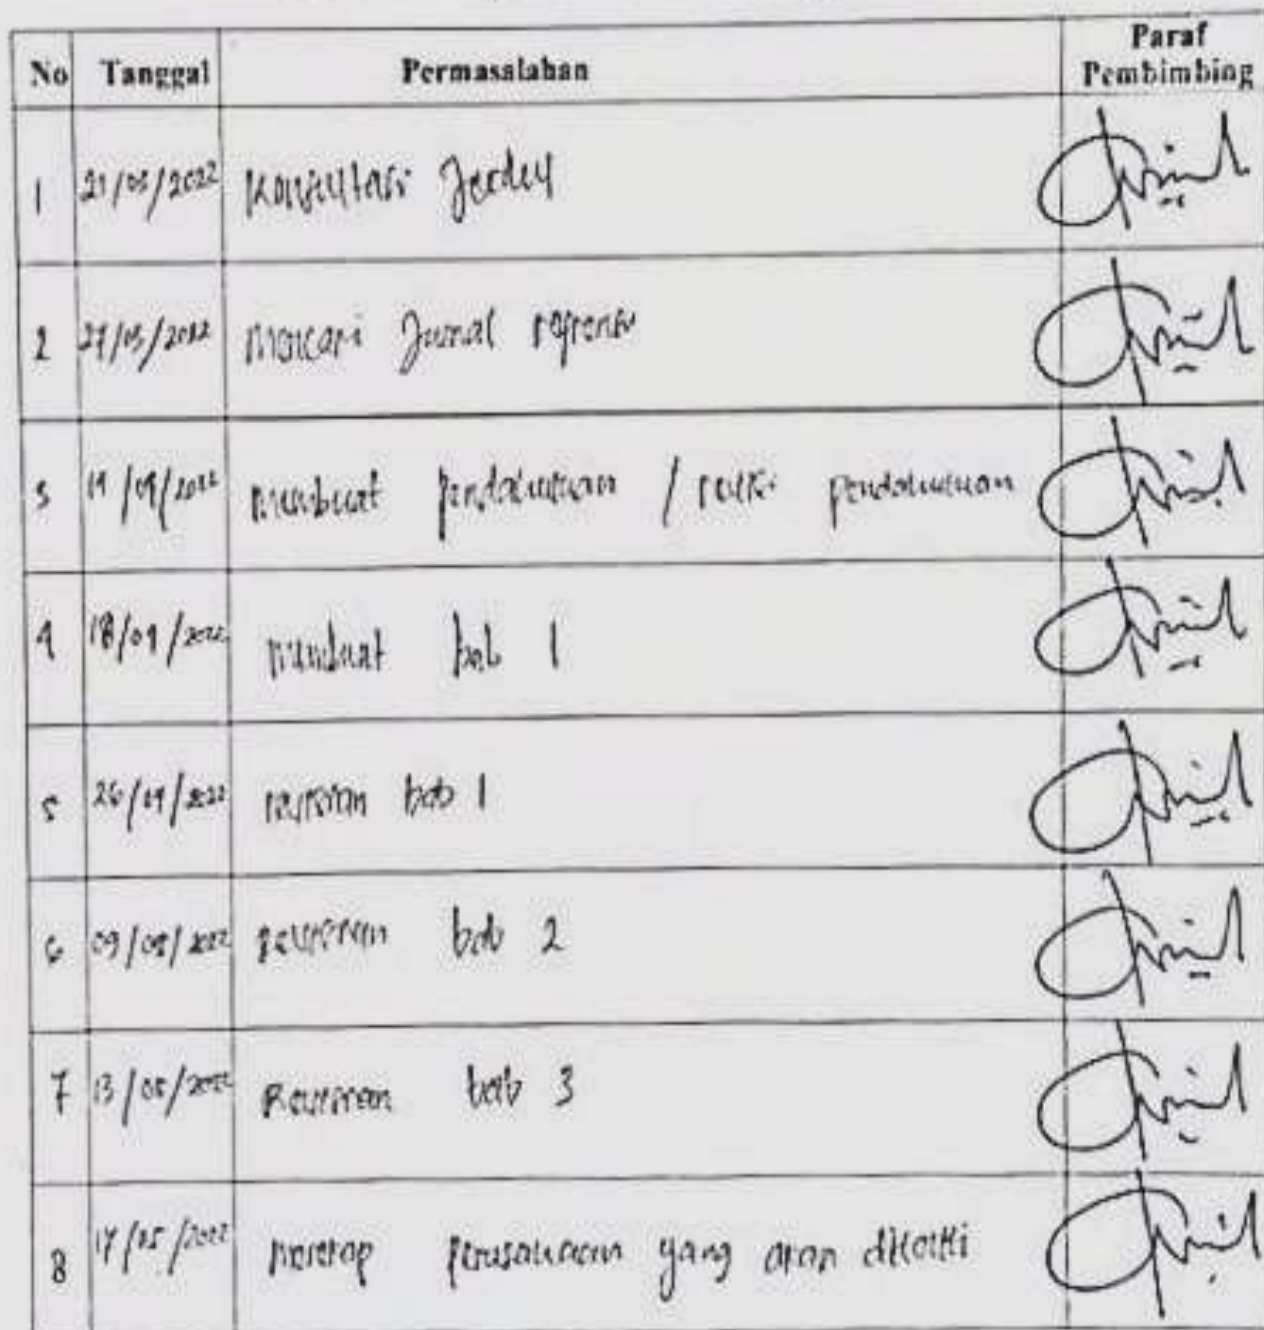 No Tanggal Permasalahan Paraf Pembimbing
1 21/03/2022 Konsultasi Judul
2 27/03/2022 Mencari Jurnal refrensi
3 2022 membuat pendahuluan / revisi pendahuluan
4 18/04/2022 membuat bab 1
5 26/04/2022 revisian bab 1
6 2022 revisian bab 2
7 13/05/2022 Revisian bab 3
8 17/05/2022 perusahaan yang akan diteliti